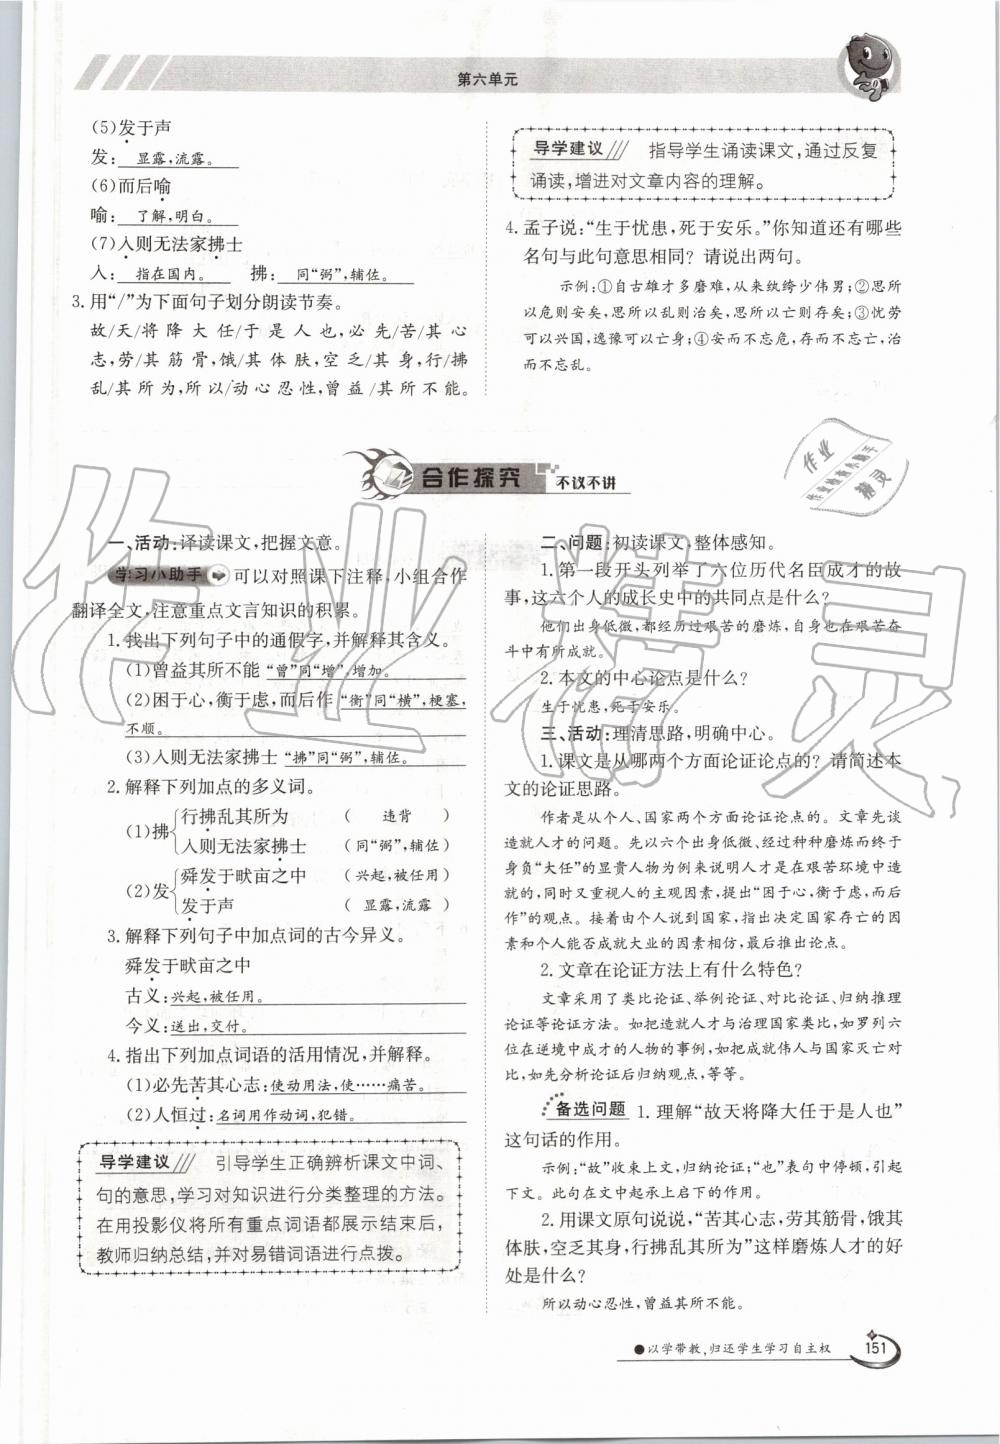 第六单元
(5)发于声
发: 显露,流露。
(6)而后喻
喻: 了解,明白。
(7)入则无法家拂士
入: 指在国内。 拂: 同“弼”,辅佐。
3. 用“/”为下面句子划分朗读节奏。
故/天/将降大任/于是人也,必先/苦/其心
志,劳/其筋骨,饿其体肤,空乏/其身,行/拂
乱/其所为,所以/动心忍性,曾益/其所不能。
导学建议 指导学生诵读课文,通过反复
诵读,增进对文章内容的理解。
4. 孟子说:“生于忧患,死于安乐。”你知道还有哪些
名句与此句意思相同? 请说出两句。
示例:①自古雄才多磨难,从来纨绔少伟男;②思所
以危则安矣,思所以乱则治矣,思所以亡则存矣;③忧劳
可以兴国,逸豫可以亡身;④安而不忘危,存而不忘亡,治
而不忘乱。
合作探究 不议不讲
一、活动:译读课文,把握文意。
学习小助手 可以对照课下注释,小组合作
翻译全文,注意重点文言知识的积累。
1. 找出下列句子中的通假字,并解释其含义。
(1)曾益其所不能 “曾”同“增”,增加。
(2)困于心,衡于虑,而后作 “衡”同“横”,梗塞,
不顺。
(3)入则无法家拂士 “拂”同“弼”,辅佐。
2. 解释下列加点的多义词。
(1)拂
行拂乱其所为 ( 违背 )
入则无法家拂士 (同“弼”,辅佐)
(2)发
舜发于畎亩之中 (兴起,被任用)
发于声 ( 显露,流露 )
3. 解释下列句子中加点词的古今异义。
舜发于畎亩之中
古义:兴起,被任用。
今义:送出,交付。
4. 指出下列加点词语的活用情况,并解释。
(1)必先苦其心志:使动用法,使……痛苦。
(2)人恒过:名词用作动词,犯错。
导学建议 引导学生正确辨析课文中词、
句的意思,学习对知识进行分类整理的方法。
在用投影仪将所有重点词语都展示结束后,
教师归纳总结,并对易错词语进行点拨。
二、问题:初读课文,整体感知。
1. 第一段开头列举了六位历代名臣成才的故
事,这六个人的成长史中的共同点是什么?
他们出身低微,都经历过艰苦的磨炼,并且都在艰苦奋
斗中有所成就。
2. 本文的中心论点是什么?
生于忧患,死于安乐。
三、活动:理清思路,明确中心。
1. 课文是从哪两个方面论证论点的? 请简述本
文的论证思路。
作者是从个人、国家两个方面论证论点的。文章先谈
造就人才的问题。先以六个出身低微、经过种种磨炼而终于
身负“大任”的显贵人物为例来说明人才是在艰苦环境中造
就的,同时又重视人的主观因素,提出“困于心,衡于虑,而后
作”的观点。接着由个人说到国家,指出决定国家存亡的因
素和个人能否成就大业的因素相仿,最后推出论点。
2. 文章在论证方法上有什么特色?
文章采用了类比论证、举例论证、对比论证、归纳推理
论证等论证方法。如把造就人才与治理国家类比,如罗列六
位在逆境中成才的人物的事例,如成就伟人与国家灭亡对
比,如先分析论证后归纳观点,等等。
备选问题 1. 理解“故天将降大任于是人也”
这句话的作用。
示例:“故”收束上文,归纳论证;“也”表句中停顿,引起
下文。此句在文中起承上启下的作用。
2. 用课文原句说说,“苦其心志,劳其筋骨,饿其
体肤,空乏其身,行拂乱其所为”这样磨炼人才的好
处是什么?
所以动心忍性,曾益其所不能。
●以学带教,归还学生学习自主权
151
作业精灵
作业
作业检查小助手
精灵